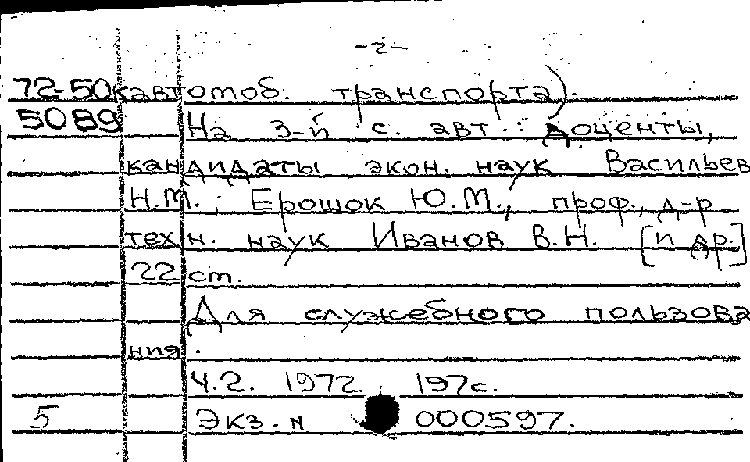 -2-
72-50 кавтомоб. транспорта).
5089 На 3-й с. авт.: доценты,
кандидаты экон. наук Васильев
Н.М., Ерошок Ю.М., проф., д-р
техн. наук Иванов В.Н. [и др.]
22 ст.
Для служебного пользова
ния.
Ч.2. 1972. 197с.
5 Экз. № 000597.